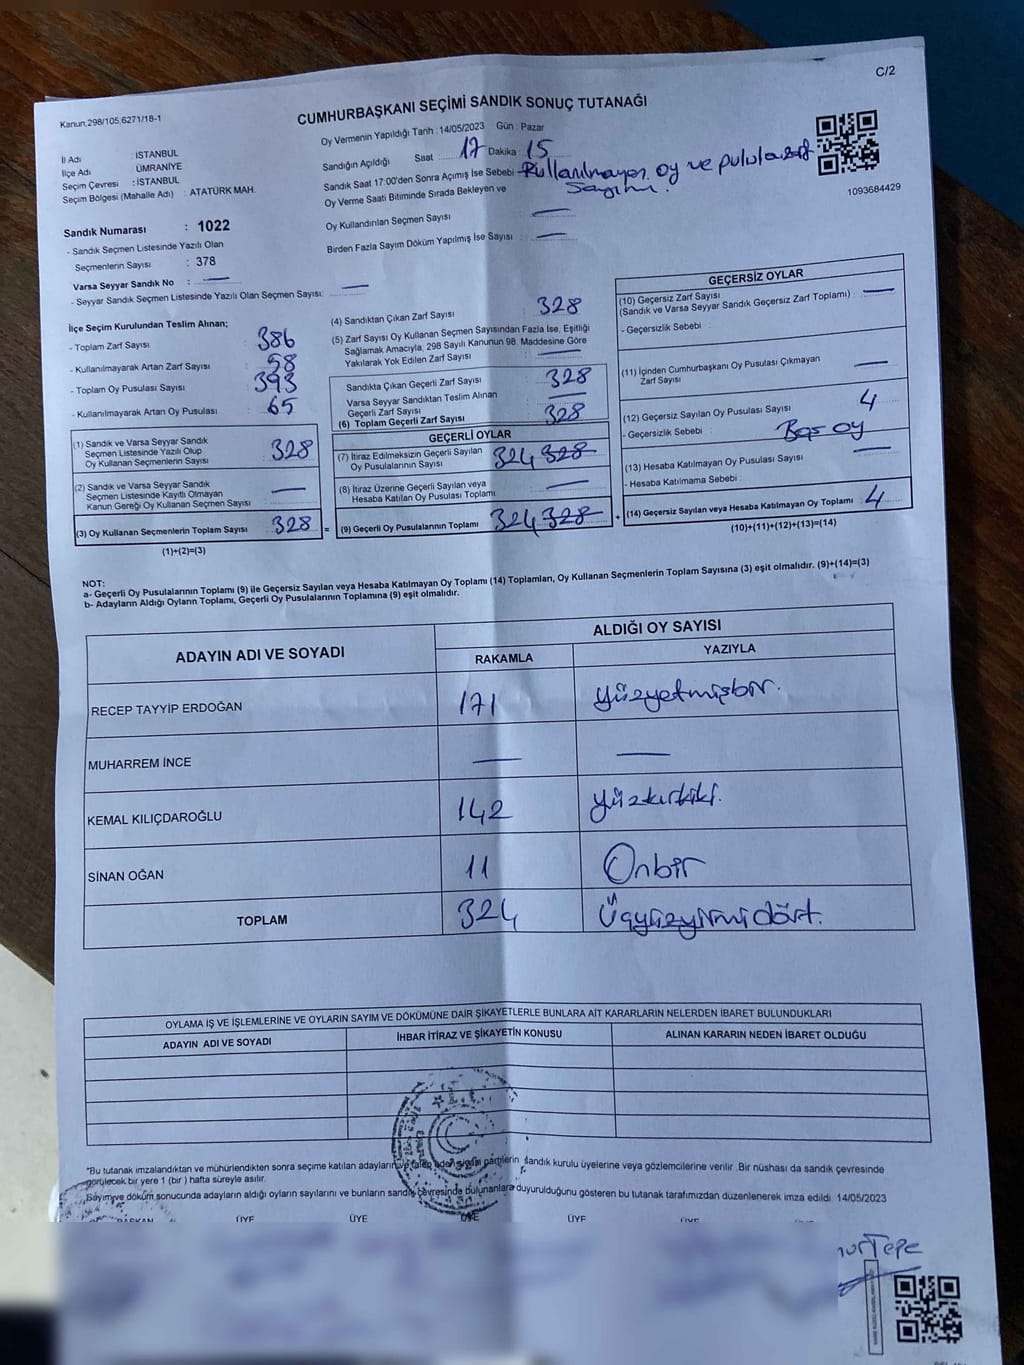 C/2
Kanun,298/105,6271/18-1
CUMHURBAŞKANI SEÇİMİ SANDIK SONUÇ TUTANAĞI
Oy Vermenin Yapıldığı Tarih : 14/05/2023 Gün : Pazar
İl Adı : İSTANBUL
İlçe Adı : ÜMRANİYE
Seçim Çevresi : İSTANBUL
Seçim Bölgesi (Mahalle Adı) : ATATÜRK MAH.
Sandığın Açıldığı Saat : 17 Dakika : 15
Sandık Saat 17:00'den Sonra Açımış İse Sebebi : Kullanılmayan oy ve pulula
sayımı.
Oy Verme Saati Bitiminde Sırada Bekleyen ve
Oy Kullandırılan Seçmen Sayısı : —
Birden Fazla Sayım Döküm Yapılmış İse Sayısı : —
1093684429
Sandık Numarası : 1022
- Sandık Seçmen Listesinde Yazılı Olan
Seçmenlerin Sayısı : 378
Varsa Seyyar Sandık No : —
- Seyyar Sandık Seçmen Listesinde Yazılı Olan Seçmen Sayısı: —
İlçe Seçim Kurulundan Teslim Alınan;
- Toplam Zarf Sayısı : 386
- Kullanılmayarak Artan Zarf Sayısı : 58
- Toplam Oy Pusulası Sayısı : 393
- Kullanılmayarak Artan Oy Pusulası : 65
(1) Sandık ve Varsa Seyyar Sandık
Seçmen Listesinde Yazılı Olup
Oy Kullanan Seçmenlerin Sayısı : 328
(2) Sandık ve Varsa Seyyar Sandık
Seçmen Listesinde Kayıtlı Olmayan
Kanun Gereği Oy Kullanan Seçmen Sayısı : —
(3) Oy Kullanan Seçmenlerin Toplam Sayısı : 328 =
(1)+(2)=(3)
(4) Sandıktan Çıkan Zarf Sayısı : 328
(5) Zarf Sayısı Oy Kullanan Seçmen Sayısından Fazla İse, Eşitliği
Sağlamak Amacıyla, 298 Sayılı Kanunun 98. Maddesine Göre
Yakılarak Yok Edilen Zarf Sayısı : —
Sandıkta Çıkan Geçerli Zarf Sayısı : 328
Varsa Seyyar Sandıktan Teslim Alınan
Geçerli Zarf Sayısı : —
(6) Toplam Geçerli Zarf Sayısı : 328
GEÇERLİ OYLAR
(7) İtiraz Edilmeksizin Geçerli Sayılan
Oy Pusulalarının Sayısı : 324 328
(8) İtiraz Üzerine Geçerli Sayılan veya
Hesaba Katılan Oy Pusulası Toplamı : —
(9) Geçerli Oy Pusulalarının Toplamı : 324 328 +
GEÇERSİZ OYLAR
(10) Geçersiz Zarf Sayısı
(Sandık ve Varsa Seyyar Sandık Geçersiz Zarf Toplamı) : —
- Geçersizlik Sebebi :
(11) İçinden Cumhurbaşkanı Oy Pusulası Çıkmayan
Zarf Sayısı : —
(12) Geçersiz Sayılan Oy Pusulası Sayısı : 4
- Geçersizlik Sebebi : Boş oy
(13) Hesaba Katılmayan Oy Pusulası Sayısı : —
- Hesaba Katılmama Sebebi :
(14) Geçersiz Sayılan veya Hesaba Katılmayan Oy Toplamı : 4
(10)+(11)+(12)+(13)=(14)
NOT:
a- Geçerli Oy Pusulalarının Toplamı (9) ile Geçersiz Sayılan veya Hesaba Katılmayan Oy Toplamı (14) Toplamları, Oy Kullanan Seçmenlerin Toplam Sayısına (3) eşit olmalıdır. (9)+(14)=(3)
b- Adayların Aldığı Oyların Toplamı, Geçerli Oy Pusulalarının Toplamına (9) eşit olmalıdır.
ADAYIN ADI VE SOYADI
ALDIĞI OY SAYISI
RAKAMLA YAZIYLA
RECEP TAYYİP ERDOĞAN 171 yüzyetmişbir.
MUHARREM İNCE — —
KEMAL KILIÇDAROĞLU 142 yüzkırkiki.
SİNAN OĞAN 11 Onbir
TOPLAM 324 Üçyüzyirmidört.
OYLAMA İŞ VE İŞLEMLERİNE VE OYLARIN SAYIM VE DÖKÜMÜNE DAİR ŞİKAYETLERLE BUNLARA AİT KARARLARIN NELERDEN İBARET BULUNDUKLARI
ADAYIN ADI VE SOYADI İHBAR İTİRAZ VE ŞİKAYETİN KONUSU ALINAN KARARIN NEDEN İBARET OLDUĞU
*Bu tutanak imzalandıktan ve mühürlendikten sonra seçime katılan adayların ve talep eden siyasi partilerin sandık kurulu üyelerine veya gözlemcilerine verilir .Bir nüshası da sandık çevresinde
görülecek bir yere 1 (bir ) hafta süreyle asılır.
Sayım ve döküm sonucunda adayların aldığı oyların sayılarını ve bunların sandık çevresinde bulunanlara duyurulduğunu gösteren bu tutanak tarafımızdan düzenlenerek imza edildi. 14/05/2023
BAŞKAN ÜYE ÜYE ÜYE ÜYE ÜYE
Tepe